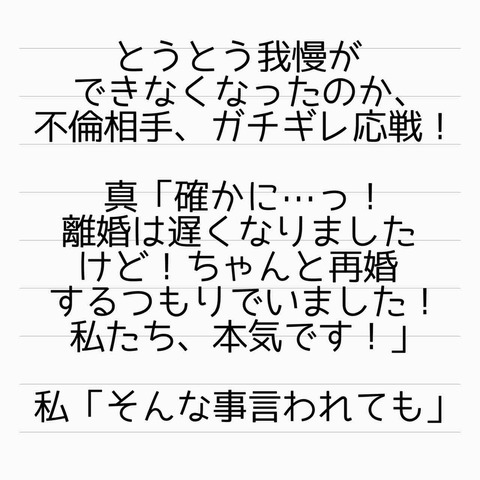 とうとう我慢が
できなくなったのか、
不倫相手、ガチギレ応戦！
真「確かに…っ！
離婚は遅くなりました
けど！ちゃんと再婚
するつもりでいました！
私たち、本気です！」
私「そんな事言われても」